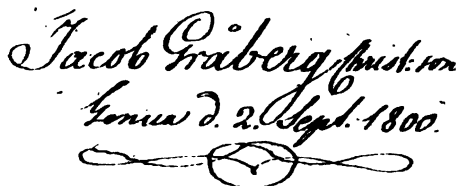 Jacob Gråberg, Christ: son
Genua d. 2. Sept. 1800.